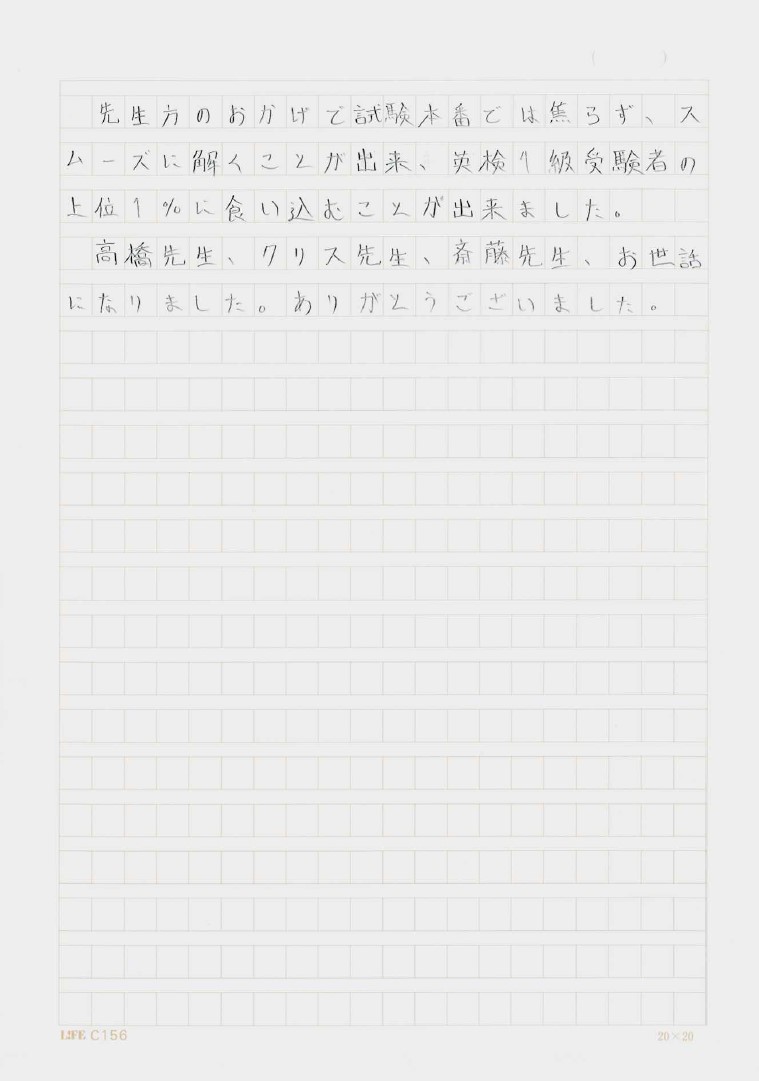 先生方のおかげで試験本番では焦らず、ス
ムーズに解くことが出来、英検1級受験者の
上位1%に食い込むことが出来ました。
高橋先生、クリス先生、斎藤先生、お世話
になりました。ありがとうございました。
LIFE C156
20×20